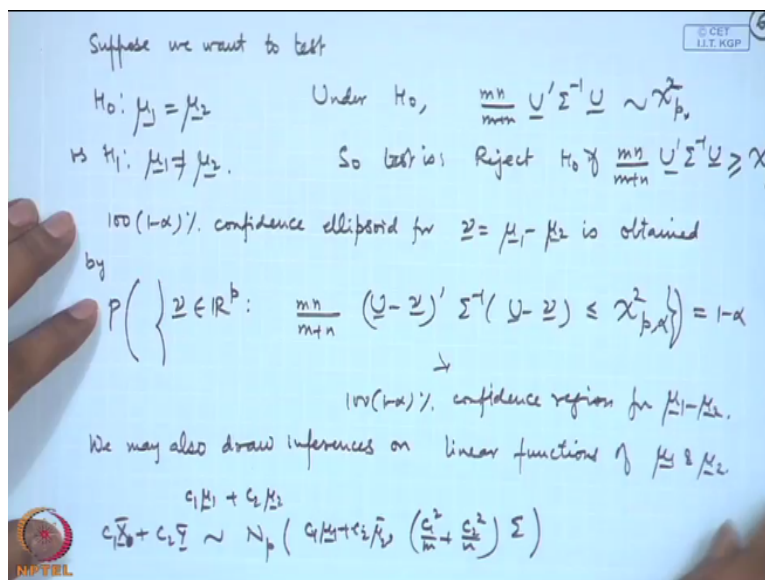 6
© CET
I.I.T. KGP
Suppose we want to test
H₀: μ₁ = μ₂ Under H₀, mn/m+n U' Σ⁻¹ U ~ χ²ₚ,
vs H₁: μ₁ ≠ μ₂. So test is: Reject H₀ if mn/m+n U' Σ⁻¹ U ≥ χ
100(1-α)% confidence ellipsoid for ν = μ₁ - μ₂ is obtained
by
P( { ν ∈ ℝᵖ : mn/m+n (U - ν)' Σ⁻¹ (U - ν) ≤ χ²ₚ,α } ) = 1-α
↓
100(1-α)% confidence region for μ₁-μ₂.
We may also draw inferences on linear functions of μ₁ & μ₂
c₁μ₁ + c₂μ₂
c₁X̄ + c₂Ȳ ~ Nₚ( c₁μ₁+c₂μ₂, (c₁²/m + c₂²/n) Σ )
NPTEL